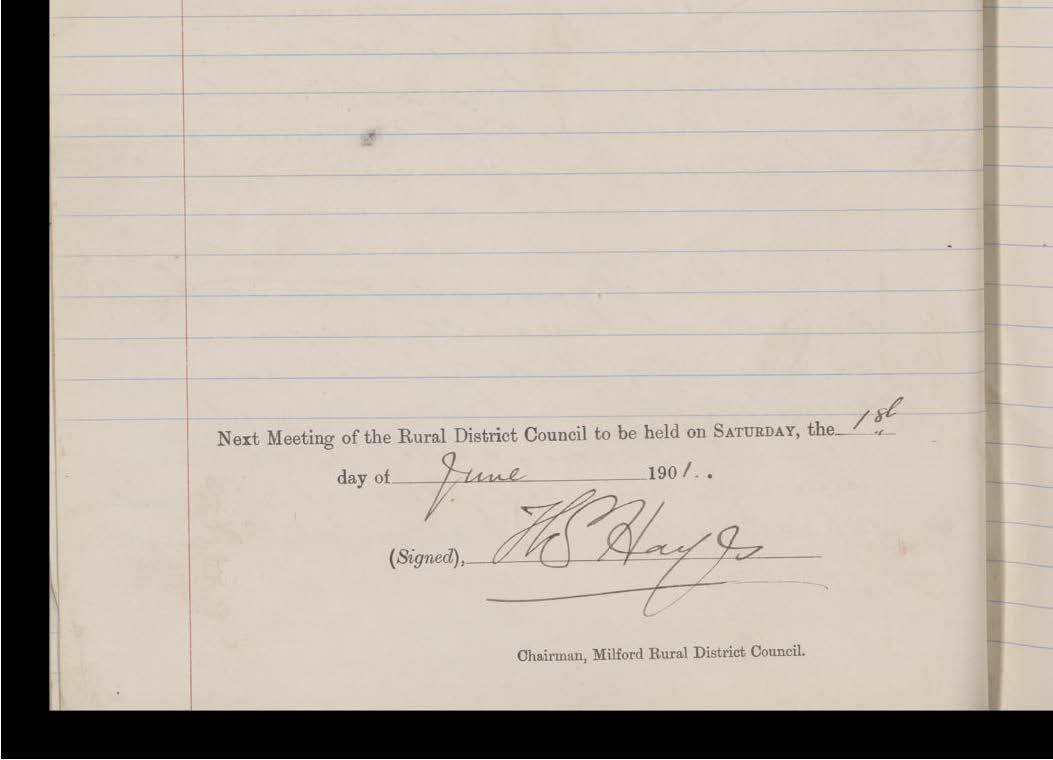 Next Meeting of the Rural District Council to be held on SATURDAY, the 1st
day of June 1901.
(Signed), Hayes
Chairman, Milford Rural District Council.